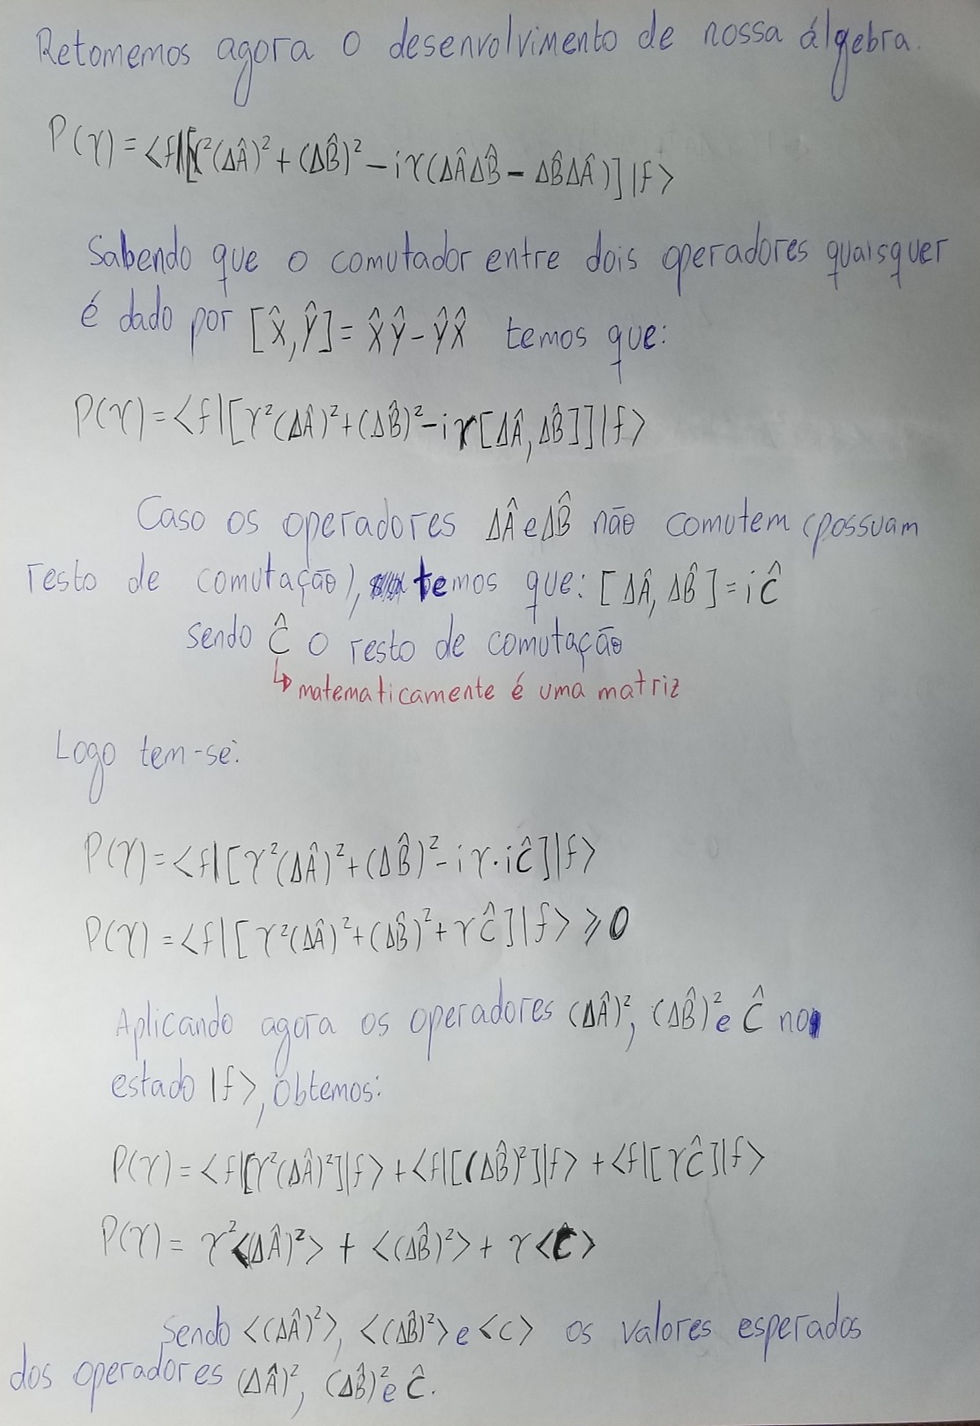 Retomemos agora o desenvolvimento de nossa álgebra.
P(γ) = <f|[γ²(ΔÂ)² + (ΔB̂)² - iγ(ΔÂΔB̂ - ΔB̂ΔÂ)]|f>
Sabendo que o comutador entre dois operadores quaisquer
é dado por [X̂,Ŷ] = X̂Ŷ - ŶX̂ temos que:
P(γ) = <f|[γ²(ΔÂ)² + (ΔB̂)² - iγ[ΔÂ, ΔB̂]]|f>
Caso os operadores ΔÂ e ΔB̂ não comutem (possuam
resto de comutação), temos que: [ΔÂ, ΔB̂] = iĈ
sendo Ĉ o resto de comutação
↳ matematicamente é uma matriz
Logo tem-se:
P(γ) = <f|[γ²(ΔÂ)² + (ΔB̂)² - iγ·iĈ]|f>
P(γ) = <f|[γ²(ΔÂ)² + (ΔB̂)² + γĈ]|f> ⩾ 0
Aplicando agora os operadores (ΔÂ)², (ΔB̂)² e Ĉ no
estado |f>, obtemos:
P(γ) = <f|[γ²(ΔÂ)²]|f> + <f|[(ΔB̂)²]|f> + <f|[γĈ]|f>
P(γ) = γ²<(ΔÂ)²> + <(ΔB̂)²> + γ<Ĉ>
Sendo <(ΔÂ)²>, <(ΔB̂)²> e <C> os valores esperados
dos operadores (ΔÂ)², (ΔB̂)² e Ĉ.